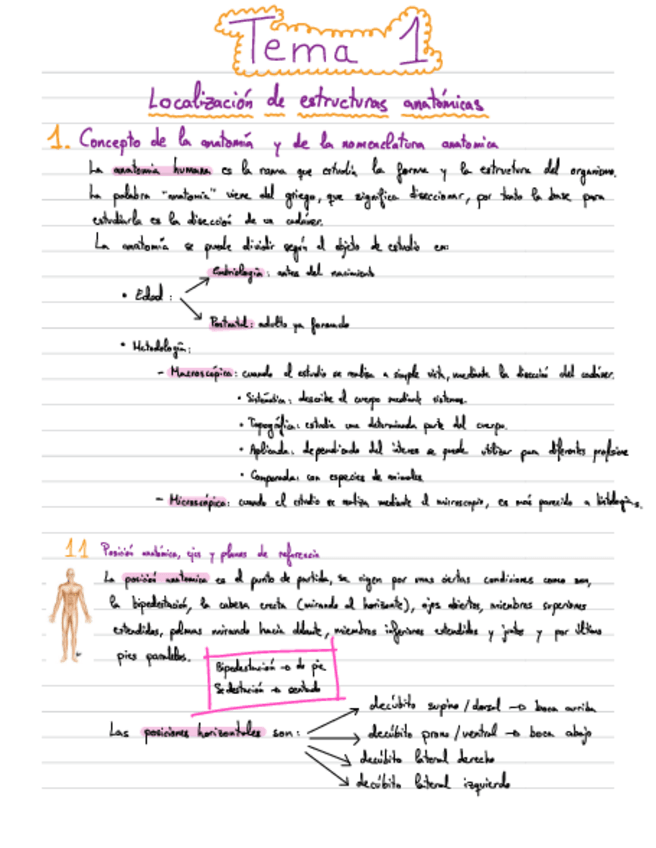 Tema 1
Localización de estructuras anatómicas
1. Concepto de la anatomía y de la nomenclatura anatomica
La anatomía humana es la rama que estudia la forma y la estructura del organismo.
La palabra "anatomia" viene del griego, que significa diseccionar, por tanto la base para
estudiarla es la disección de un cadáver.
La anatomía se puede dividir según el objeto de estudio en:
Embriología: antes del nacimiento
• Edad:
Postnatal: adulto ya formado
• Metodología:
- Macroscópica: cuando el estudio se realiza a simple vista, mediante la disección del cadáver.
• Sistemática: describe el cuerpo mediante sistemas.
• Topográfica: estudia una determinada parte del cuerpo.
• Aplicada: dependiendo del interes se puede utilizar para diferentes profesione
• Comparada: con especies de animales
- Microscópica: cuando el estudio se realiza mediante el microscopio, es más parecido a histología.
1.1 Posición anatómica, ejes y planos de referencia
La posición anatomica es el punto de partida, se rigen por unas ciertas condiciones como son,
la bipedestación, la cabeza erecta (mirando al horizonte), ojos abiertos, miembros superiores
extendidos, palmas mirando hacia delante, miembros inferiores extendidos y juntos y por último
pies paralelos.
Bipedestación → de pie
Sedestación → sentado
decúbito supino / dorsal → boca arriba
Las posiciones horizontales son:
decúbito prono / ventral → boca abajo
decúbito lateral derecho
decúbito lateral izquierdo